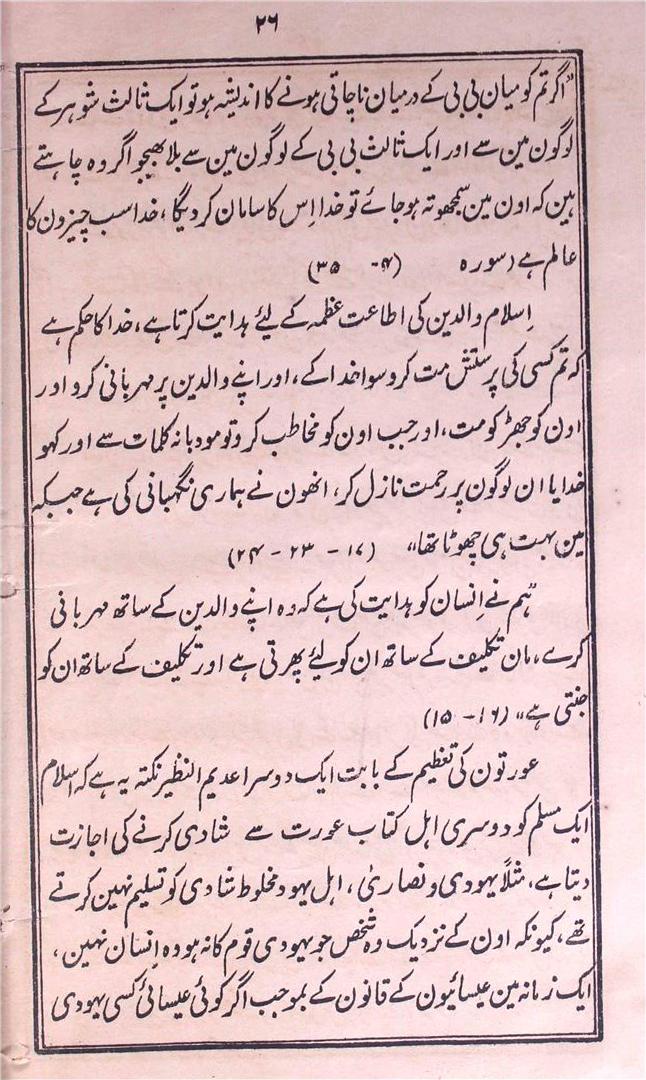 ۲۶
"اگر تم کو میان بی بی کے درمیان ناچاقی ہونے کا اندیشہ ہو تو ایک ثالث شوہر کے
لوگون مین سے اور ایک ثالث بی بی کے لوگون مین سے بلا بھیجو اگر وہ چاہتے
ہین کہ اون مین سمجھوتہ ہو جائے تو خدا اِس کا سامان کر دیگا، خدا سب چیزون کا
عالم ہے (سورہ (۴- ۳۵)
اِسلام والدین کی اطاعت عظمہ کے لیٔے ہدایت کرتا ہے، خدا کا حکم ہے
کہ تم کسی کی پرستش مت کرو سوا خدا کے، اور اپنے والدین پر مہربانی کرو اور
اون کو جھڑکو مت، اور جب اون کو مخاطب کرو تو مودبانہ کلمات سے اور کہو
خدایا ان لوگون پر رحمت نازل کر، انھون نے ہماری نگہبانی کی ہے جبکہ
مین بہت ہی چھوٹا تھا،، (۱۷ - ۲۳ - ۲۴)
"ہم نے اِنسان کو ہدایت کی ہے کہ وہ اپنے والدین کے ساتھ مہربانی
کرے، مان تکلیف کے ساتھ ان کو لیٔے پھرتی ہے اور تکلیف کے ساتھ ان کو
جنتی ہے،، (۱۶- ۱۵)
عورتون کی تعظیم کے بابت ایک دوسرا عدیم النظیر نکتہ یہ ہے کہ اسلام
ایک مسلم کو دوسری اہل کتاب عورت سے شادی کرنے کی اجازت
دیتا ہے، مثلاً یہودی و نصاریٰ، اہل یہود مخلوط شادی کو تسلیم نہین کرتے
تھے، کیونکہ اون کے نزدیک وہ شخص جو یہودی قوم کا نہ ہو وہ اِنسان نہین،
ایک زمانہ مین عیسائیون کے قانون کے بموجب اگر کوئی عیسائی کسی یہودی